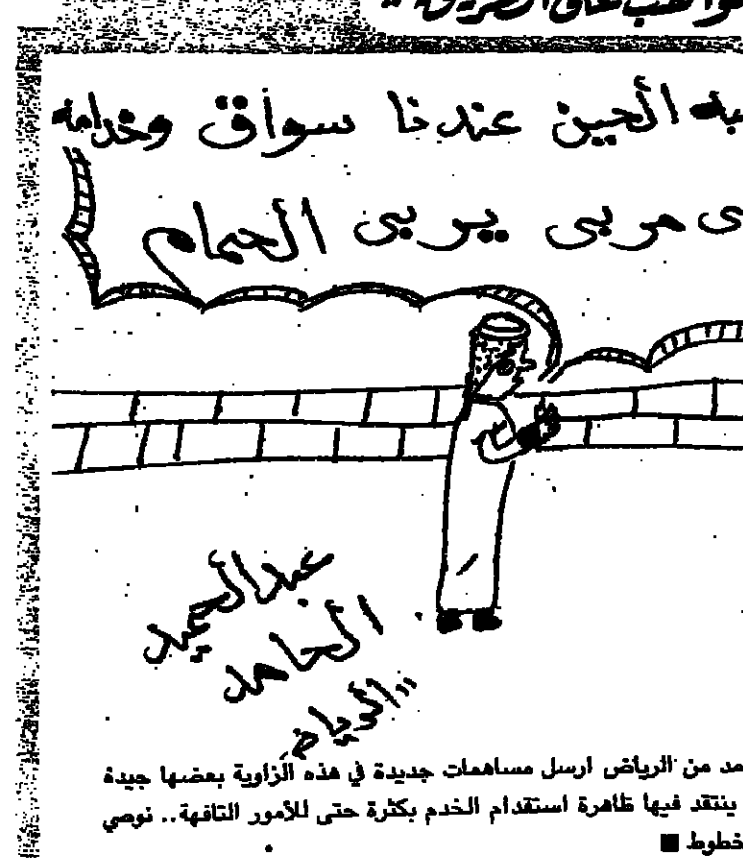 مواهب على الطريق
الحين عندنا سواق وخدامه
مربى يربى الحمام
عبدالحميد
الحامد
"الرياض
مد من الرياض ارسل مساهمات جديدة في هذه الزاوية بعضها جيدة
ينتقد فيها ظاهرة استقدام الخدم بكثرة حتى للأمور التافهة.. نوصي
خطوط ■